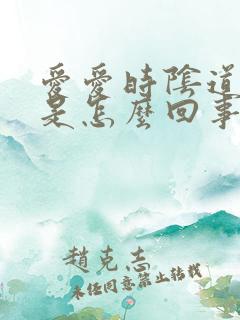 愛愛時陰道
是怎麼回事
趙克志
未經同意禁止轉載